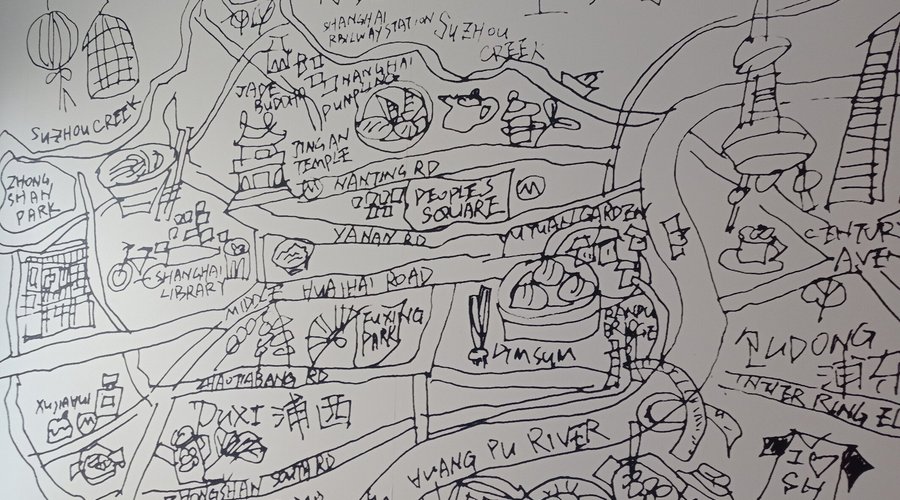 SHANGHAI
RAILWAY STATION
SUZHOU
CREEK
JADE
BUDDHA
SHANGHAI
DUMPLING
SUZHOU CREEK
JINGAN
TEMPLE
ZHONG
SHAN
PARK
NANJING RD
PEOPLE,S
SQUARE
YUYUAN GARDEN
YANAN RD
CENTURY
AVEN
SHANGHAI
LIBRARY
MIDDLE HUAIHAI ROAD
FUXING
PARK
DIMSUM
PUDONG
浦东
ZHAOJIABANG RD
INNER RING EL
XUJIAHUI
PUXI 浦西
HUANG PU RIVER
ZHONGSHAN SOUTH RD
I
SH